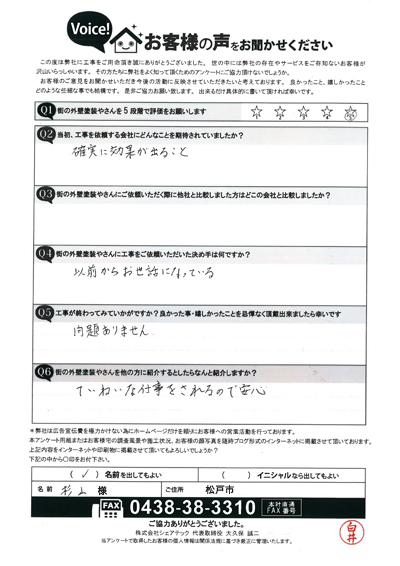 Voice!
お客様の声をお聞かせください
この度は弊社に工事をご用命頂き誠にありがとうございました。世の中には弊社の存在やサービスをご存知ないお客様が
沢山いらっしゃいます。その方たちに弊社をよく知って頂くためのアンケートにご協力頂けないでしょうか。
お客様のご意見をお聞かせいただき今後の活動に反映させていただきたいと考えております。良かったこと、嬉しかったこと
どのような些細な事でも結構です。是非ご協力お願い致します。出来るだけ具体的に書いて頂ければ幸いです。
Q1 街の外壁塗装やさんを5段階で評価をお願いします
Q2 当初、工事を依頼する会社にどんなことを期待されていましたか?
確実に効果が出ること
Q3 街の外壁塗装やさんにご依頼いただく際に他社と比較しました方はどこの会社と比較しましたか?
Q4 街の外壁塗装やさんに工事をご依頼いただいた決め手は何ですか?
以前からお世話になっている
Q5 工事が終わってみていかがですか?良かった事・嬉しかったことを忌憚なく頂戴出来ましたら幸いです
問題ありません
Q6 街の外壁塗装やさんを他の方に紹介するとしたらなんと紹介しますか?
ていねいな仕事をされるので安心
*弊社は広告宣伝費を極力かけない為にホームページだけを頼りにお客様への営業活動を行っております。
本アンケート用紙またはお客様宅の調査風景や施工状況、お客様の顔写真を随時ブログ形式のインターネットに掲載させて頂いております。
上記内容をインターネットや印刷物に掲載させて頂いてもよろしいでしょうか?
下記の中から○印をお付下さい。
( ✓ ) 名前を出してもよい ( ) イニシャルなら出してもよい
名前 杉山 様 ご住所 松戸市
FAX 0438-38-3310 本社直通 FAX番号
白井
ご協力ありがとうございました。
株式会社シェアテック 代表取締役 大久保 誠二
当アンケートで取得したお客様の個人情報は関係法規に基づき厳正に管理いたします。